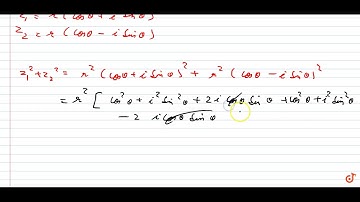 z₁ = r (cosθ + i sinθ)
z₂ = r (cosθ - i sinθ)
z₁² + z₂² = r² (cosθ + i sinθ)² + r² (cosθ - i sinθ)²
= r² [ cos²θ + i² sin²θ + 2 i cosθ sinθ + cos²θ + i² sin²θ
- 2 i cosθ sinθ